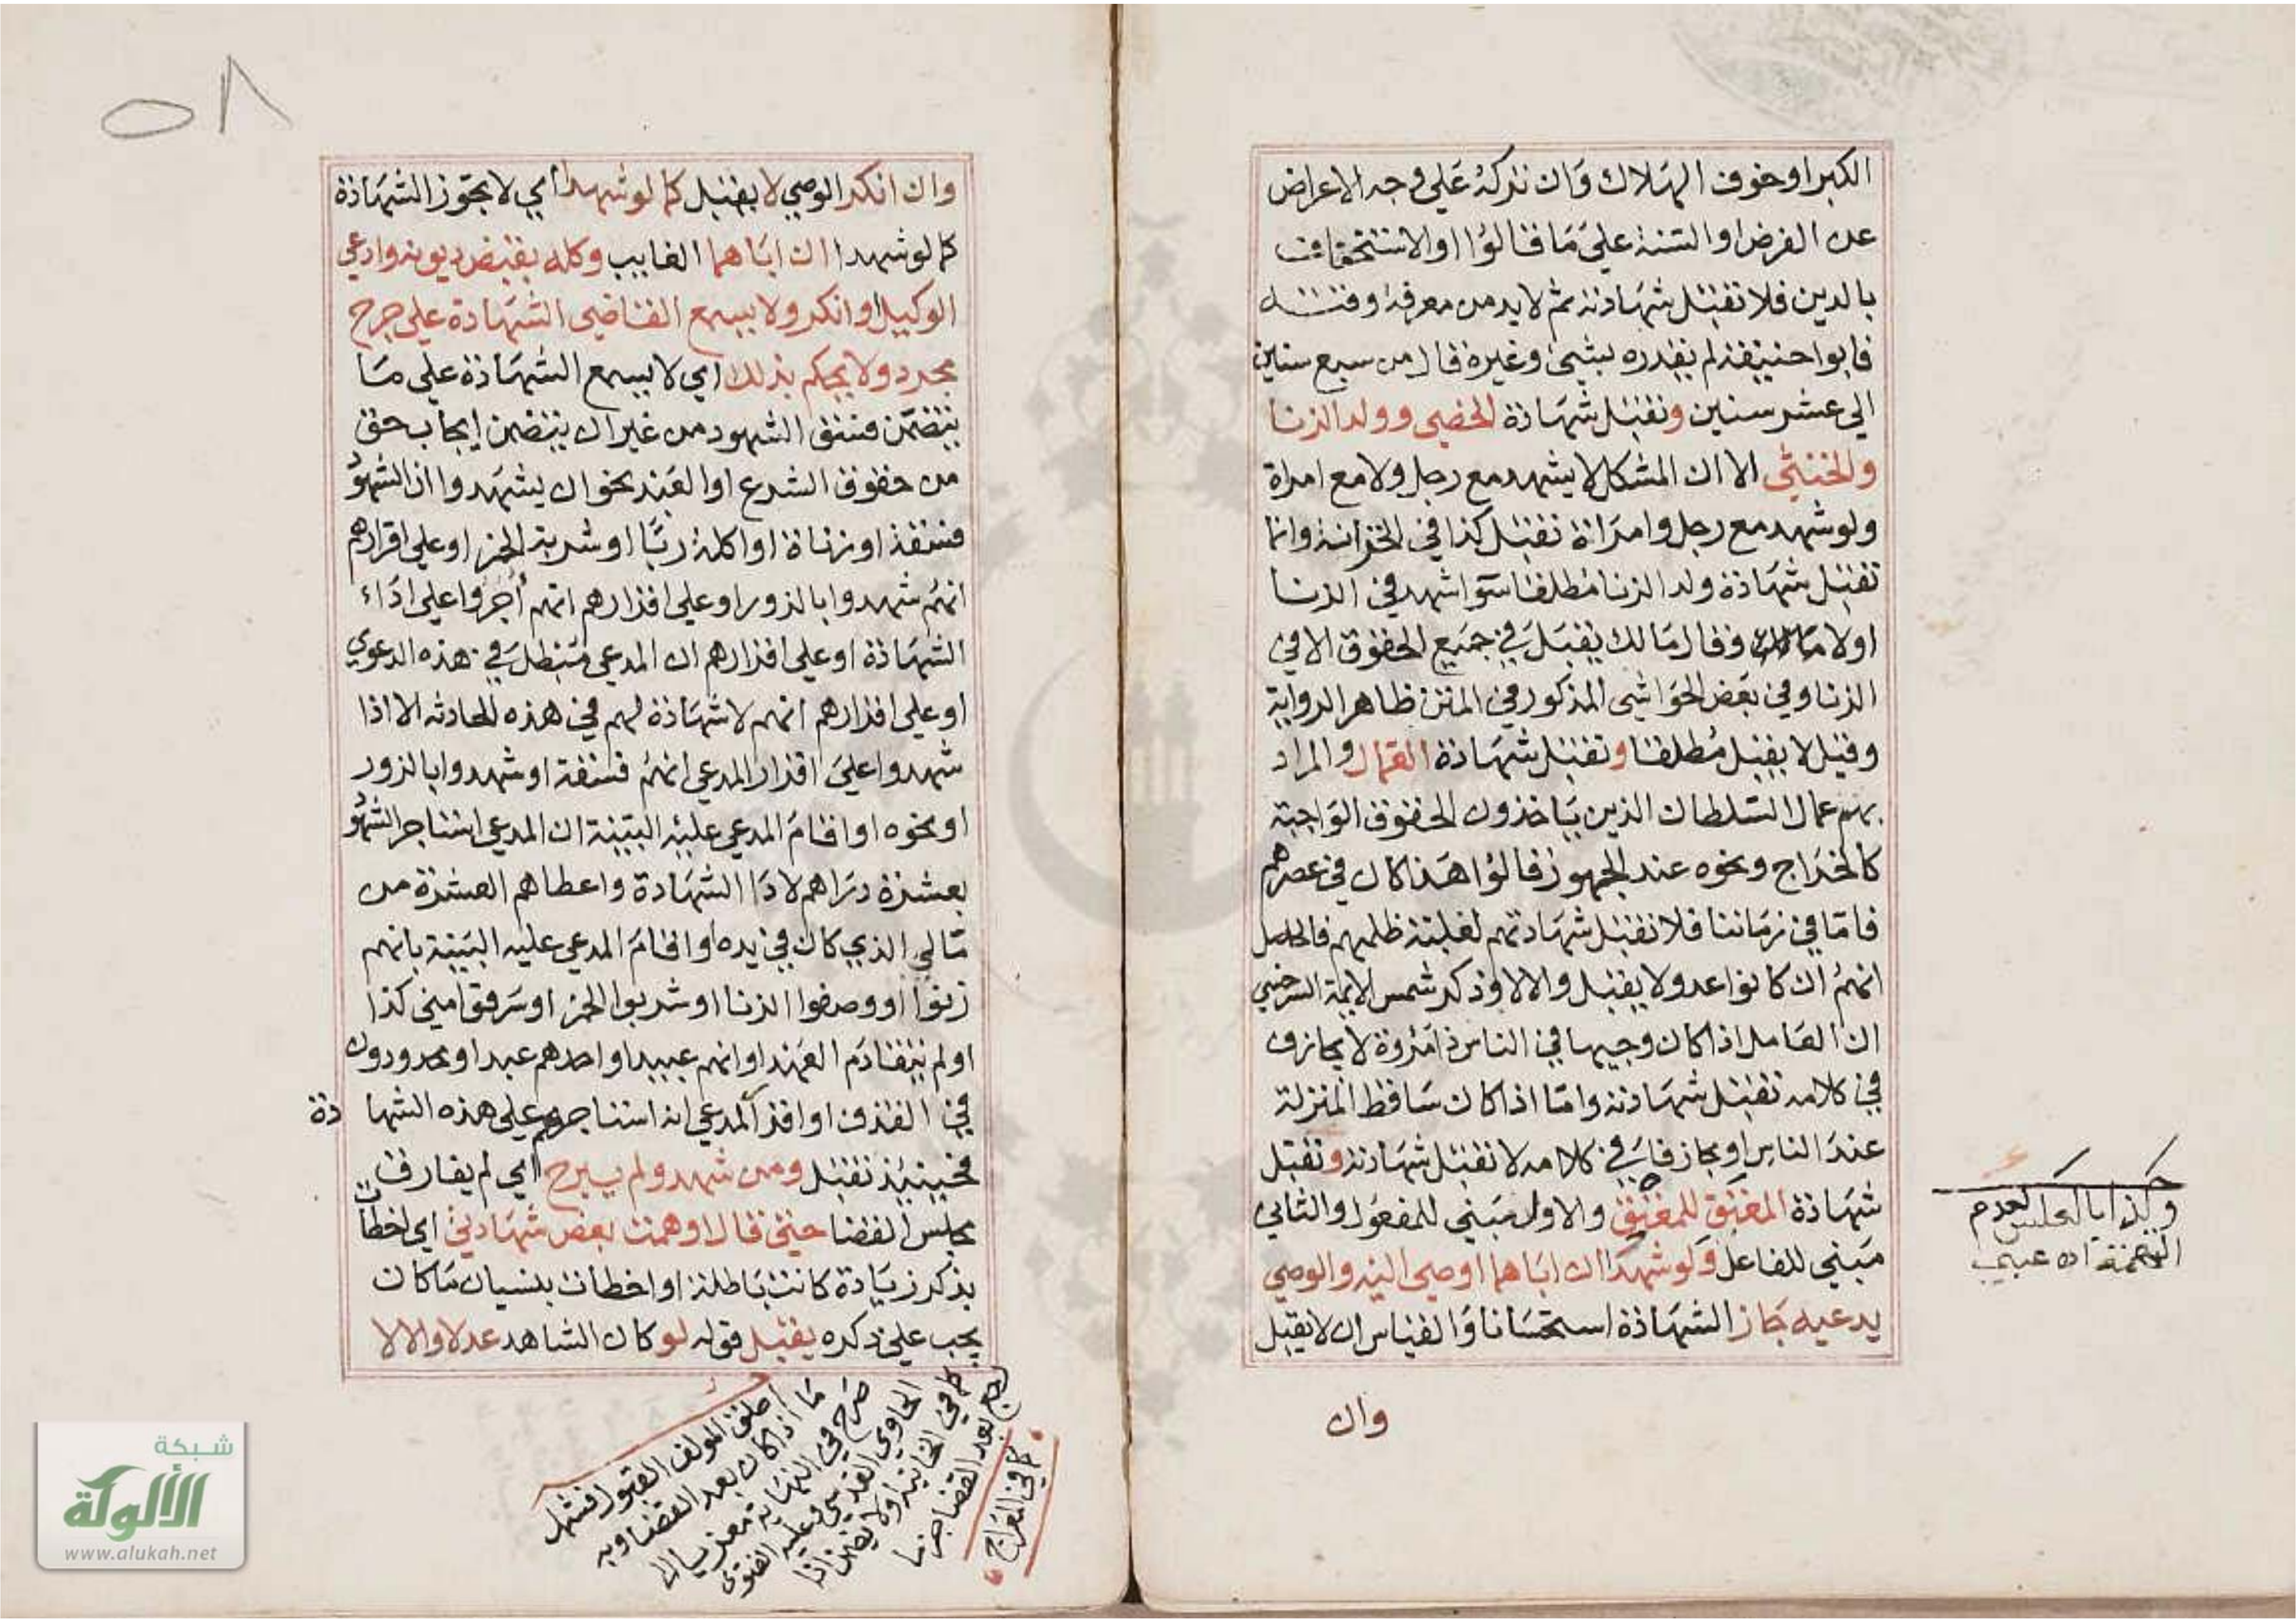 الكبر او خوف الهلاك وان تركه على وجه الاعراض
عن الفرض او السنة على ما قالوا او الاستخفاف
بالدين فلا تقبل شهادته ثم لا بد من معرفة وقته
فابو احنيفة لم يقدره بشئ وغيره قال من سبع سنين
الي عشر سنين وتقبل شهادة الخصي وولد الزنا
والخنثي الا ان المشكل لا يشهد مع رجل ولا مع امراة
ولو شهد مع رجل وامراة تقبل كذا في الخزانة وانما
تقبل شهادة ولد الزنا مطلقا سوا شهد في الزنا
او لا وقال مالك يقبل في جميع الحقوق الا في
الزنا وفي بعض الحواشي المذكور في المتن ظاهر الرواية
وقيل لا يقبل مطلقا وتقبل شهادة العمال والمراد
بهم عمال السلطان الذين ياخذون الحقوق الواجبة
كالخراج ونحوه عند الجمهور قالوا هذا كان في عصرهم
فاما في زماننا فلا تقبل شهادتهم لغلبة ظلمهم فالحاصل
انهم ان كانوا عدولا يقبل والا لا وذكر شمس الايمة السرخسي
ان العامل اذا كان وجيها في الناس ذا مروة لا يجازف
في كلامه تقبل شهادته واما اذا كان ساقط المنزلة
عند الناس او يجازف في كلامه لا تقبل شهادته وتقبل
شهادة المعتق للمعتق والاول مبني للمفعول والثاني
مبني للفاعل ولو شهدا ان اباهما اوصي اليه والوصي
يدعيه جاز الشهادة استحسانا والقياس ان لا يقبل
وان
وكذا
لعدم
التهمة اه عيني
٥٨
وان انكر الوصي لا يقبل كما لو شهدا اي لا يجوز الشهادة
كما لو شهدا ان اباهما الغايب وكله بقبض ديونه وادعي
الوكيل او انكر ولا يسمع القاضي الشهادة علي جرح
مجرد ولا يحكم بذلك اي لا يسمع الشهادة علي ما
يتضمن فسق الشهود من غير ان يتضمن ايجاب حق
من حقوق الشرع او العبد نحو ان يشهدوا ان الشهود
فسقة او زناة او اكلة ربا او شربة الخمر او علي اقرارهم
انهم شهدوا بالزور او علي اقرارهم انهم أجروا علي اداء
الشهادة او علي اقرارهم ان المدعي مبطل في هذه الدعوي
او علي اقرارهم انهم لا شهادة لهم في هذه الحادثه الا اذا
شهدوا علي اقرار المدعي انهم فسقة او شهدوا بالزور
او نحوه او اقام المدعي عليه البينة ان المدعي استاجر الشهود
بعشرة دراهم لادا الشهادة واعطاهم العشرة من
مالي الذي كان في يده او اقام المدعي عليه البينة بانهم
زنوا او وصفوا الزنا او شربوا الخمر او سرقوا مني كذا
او لم يتقادم العهد او انهم عبيد او احدهم عبد او محدودون
في القذف او اقر المدعي انه استاجرهم علي هذه الشها دة
فحينيذ تقبل ومن شهد ولم يبرح اي لم يفارق
مجلس القضا حتي قال اوهمت بعض شهادتي اي اخطات
بذكر زيادة كانت باطلة او اخطات بنسيان ما كان
يجب علي ذكره يقبل قوله لو كان الشاهد عدلا والا لا
اطلق المولف القبول فشمل
ما اذا كان بعد القضا وبه
صرح في النهاية معزيا الي
الحاوي القدسي وعليه الفتوي
كما في الخانية ولا يضمن اذا
رجع بعد القضا جزما
كما في المعراج
شبكة
الألوكة
www.alukah.net